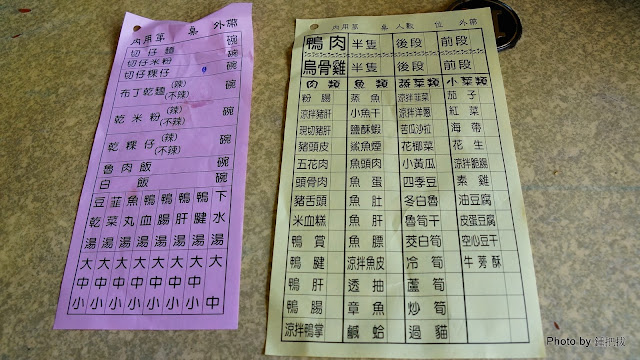 內用第 桌 外帶
切仔麵 碗
切仔米粉 碗
切仔粿仔 碗
布丁乾麵(辣)(不辣) 碗
乾米粉(辣)(不辣) 碗
乾粿仔(辣)(不辣) 碗
魯肉飯 碗
白飯 碗
豆乾湯 大中小
韮菜湯 大中小
魚丸湯 大中小
鴨血湯 大中小
鴨腸湯 大中小
鴨肝湯 大中小
鴨腱湯 大中小
下水湯 大中
內用第 桌 人數 位 外帶
鴨肉 半隻 後段 前段
烏骨雞 半隻 後段 前段
肉類 魚類 蔬菜類 小菜類
粉腸 蒸魚 涼拌韮菜 茄子
涼拌豬肝 小魚干 涼拌洋蔥 紅菜
現切豬肝 鹽酥蝦 苦瓜沙拉 海帶
豬頭皮 鯊魚煙 花椰菜 花生
五花肉 魚頭肉 小黃瓜 涼拌脆腸
頭骨肉 魚蛋 四季豆 素雞
豬舌頭 魚肚 冬白魯 油豆腐
米血糕 魚肝 魯筍干 皮蛋豆腐
鴨賞 魚鰾 茭白筍 空心豆干
鴨腱 涼拌魚皮 冷筍 牛蒡酥
鴨肝 透抽 蘆筍
鴨腸 章魚 炒筍
涼拌鴨掌 鹹蛤 過貓
Photo by 鍾把拔